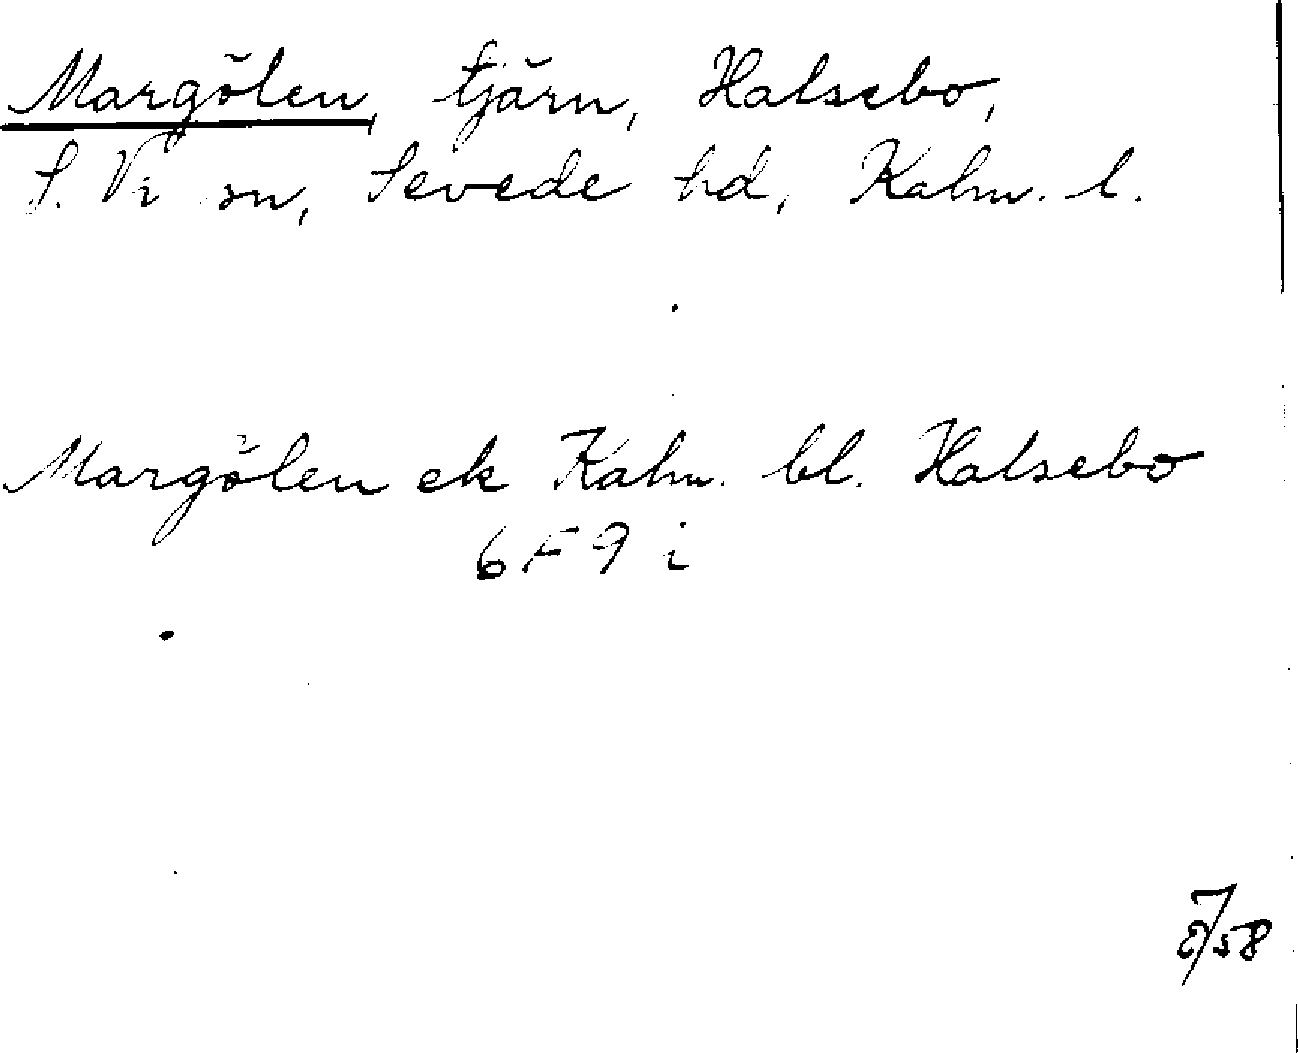 Margölen, tjärn, Halsebo,
S. Vi sn, Sevede hd, Kalm. l.
Margölen ek Kalm. bl. Halsebo
6 F 9 i